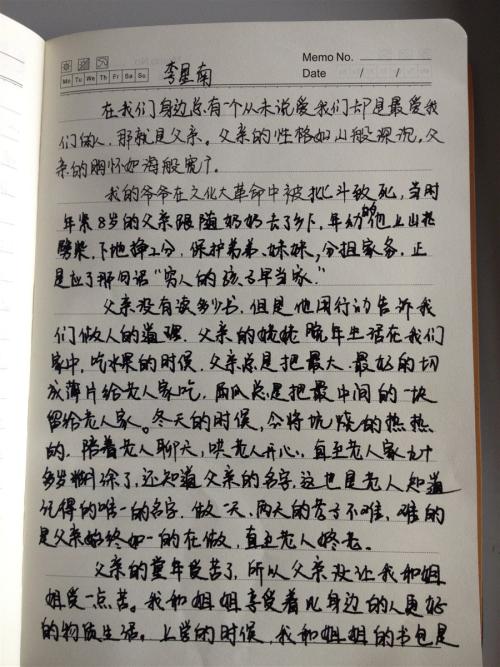 Memo No.
Mo Tu We Th Fr Sa Su
Date / /
李星南
在我们身边总有个从未说爱我们却是最爱我
们的人，那就是父亲。父亲的性格如山般深沉，父
亲的胸怀如海般宽广。
我的爷爷在文化大革命中被批斗致死，当时
年柴8岁的父亲跟随奶奶去了乡下，年幼的他上山
劈柴，下地挣工分，保护弟弟、妹妹，分担家务，正
是应了那句话“穷人的孩子早当家。”
父亲没有读多少书，但是他用行动告诉我
们做人的道理，父亲的姥姥晚年生活在我们
家中，吃水果的时候，父亲总是把最大、最好的切
成薄片给老人家吃，西瓜总是把最中间的一块
留给老人家。冬天的时候，会将炕烧的热热
的，陪着老人聊天，哄老人开心，直至老人家九十
多岁糊涂了，还知道父亲的名字，这也是老人知道
记得的唯一的名字，做一天、两天的孝子不难，难的
是父亲始终如一的在做，直至老人终老。
父亲的童年受苦了，所以父亲没让我和姐
姐受一点苦。我和姐姐享受着比身边的人更好
的物质生活。上学的时候，我和姐姐的书包是